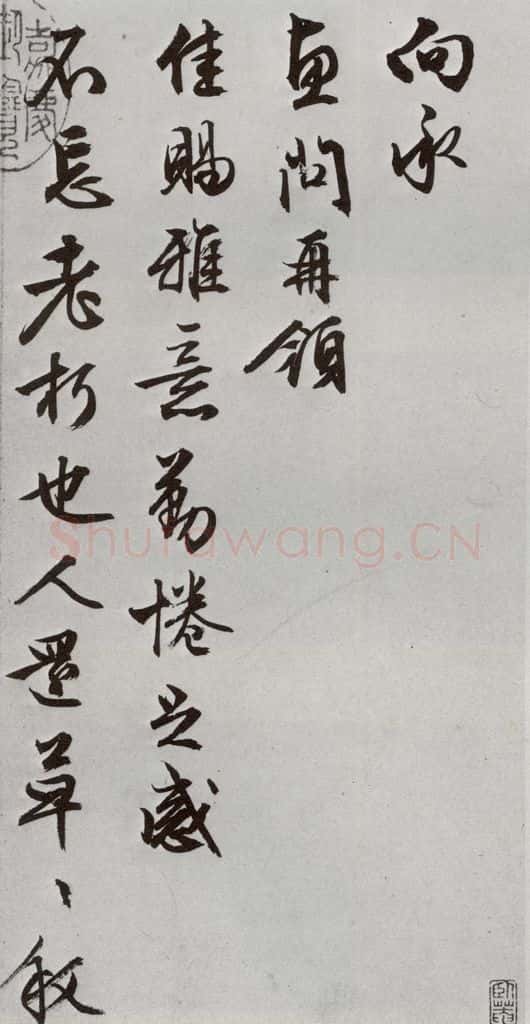 向承
惠問再領
佳賜雅意勤惓足感
不忘老朽也人還草〻叙
嘉慶
Shufawang.CN